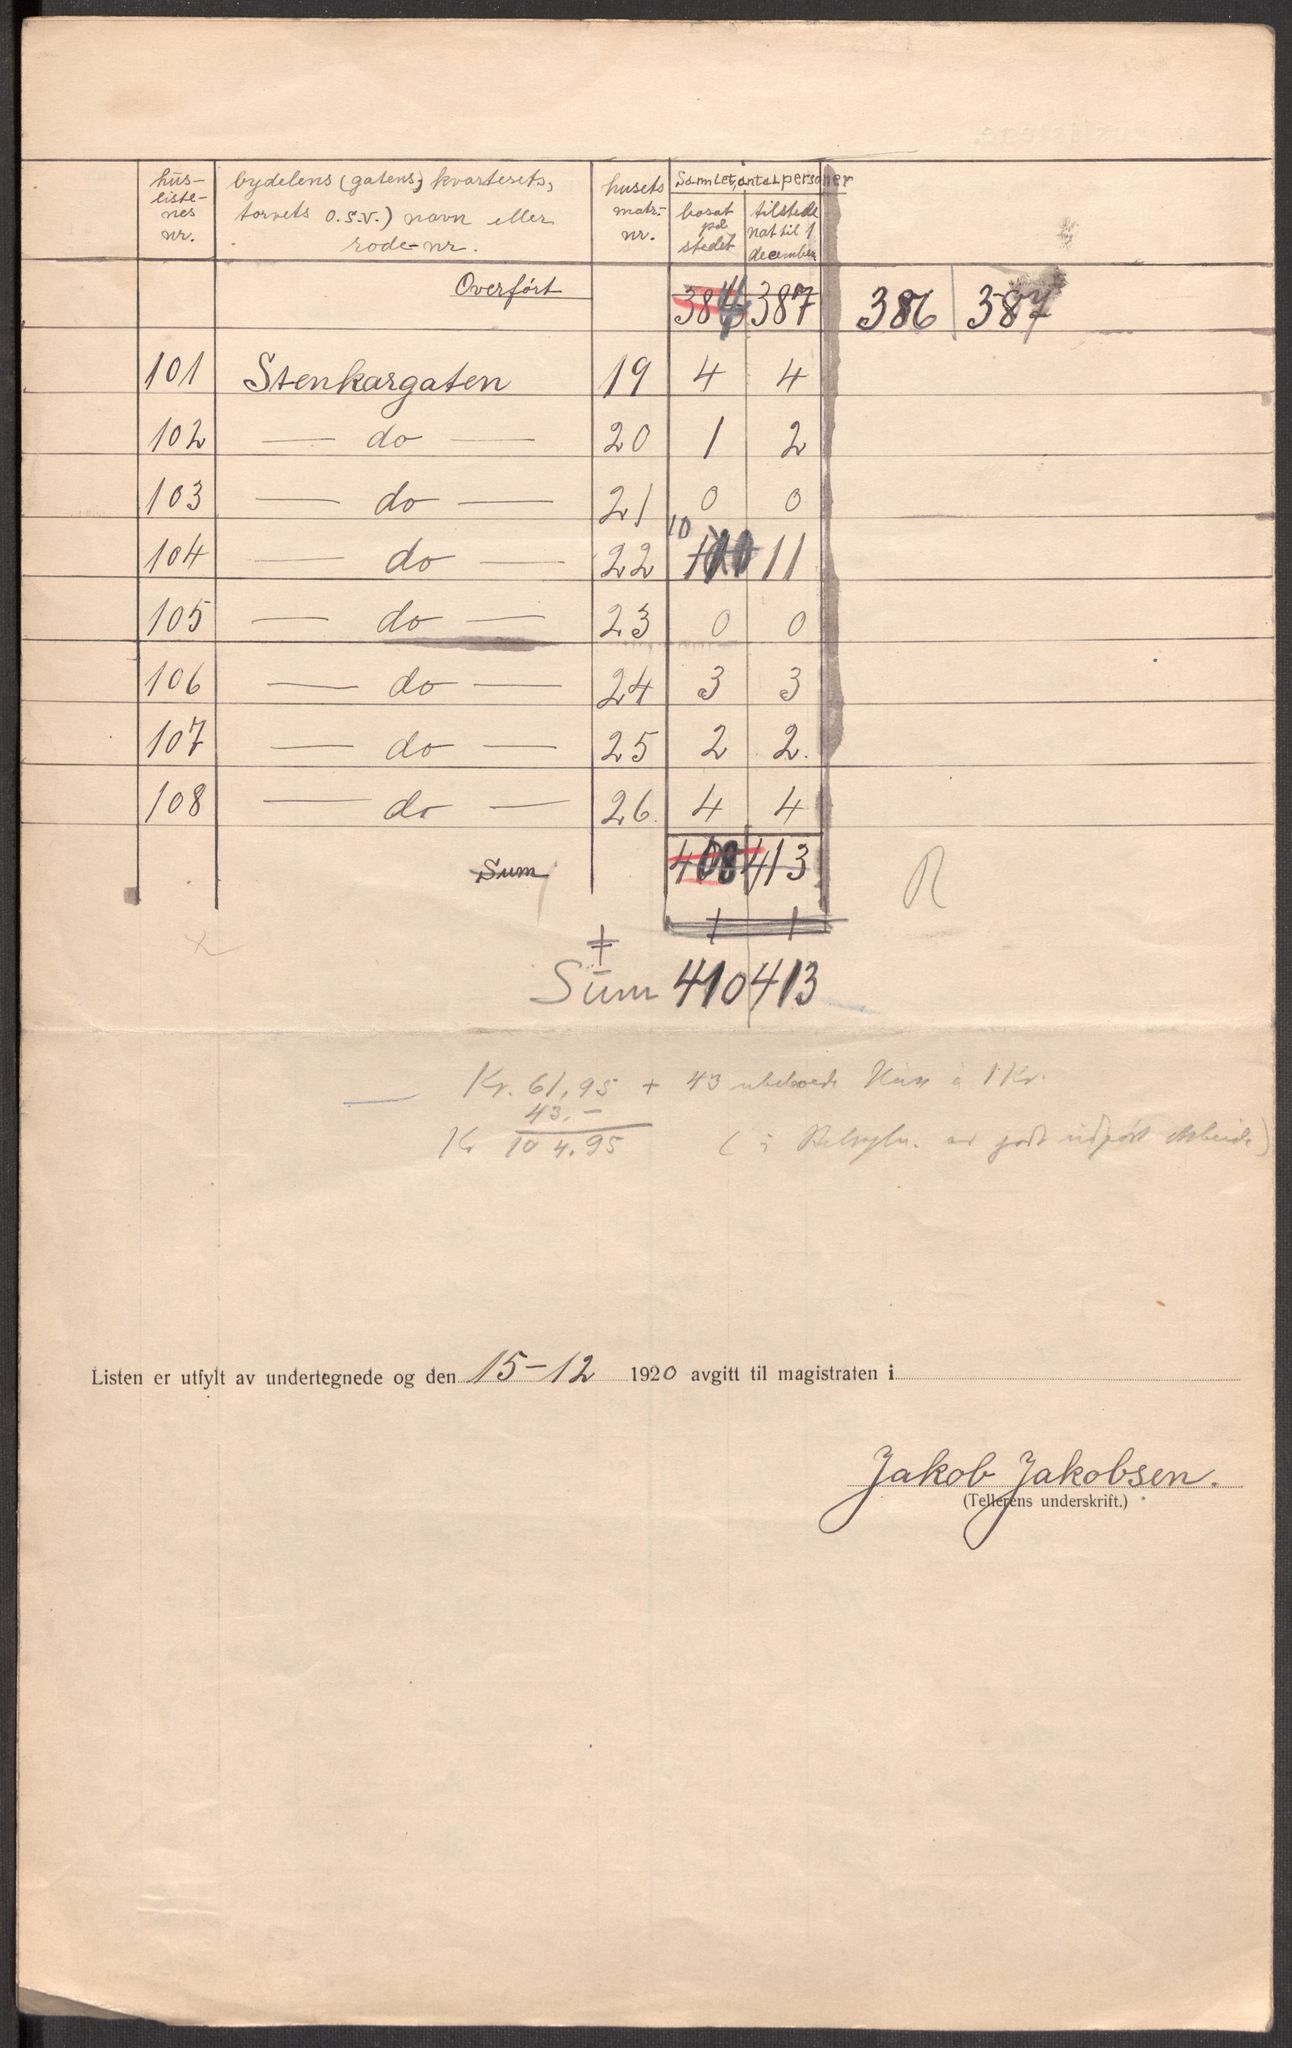 hus- liste- nes nr. bydelens (gatens, kvarterets, torvets o.s.v.) navn eller rode-nr. husets matr.- nr. Samlet antal personer bosat på stedet tilstede nat til 1 december
Overført 387 386 387
101 Stenkargaten 19 4 4
102 — do — 20 1 2
103 — do — 21 0 0
104 — do — 22 10 11
105 — do — 23 0 0
106 — do — 24 3 3
107 — do — 25 2 2.
108 — do — 26 4 4
Sum 408 413
R
Sum 410 413
Kr. 61,95 + 43 ubeboede Hus à 1 Kr.
43.-
Kr 104.95 ( er godt udført Arbeide)
Listen er utfylt av undertegnede og den 15-12 1920 avgitt til magistraten i
Jakob Jakobsen.
(Tellerens underskrift.)